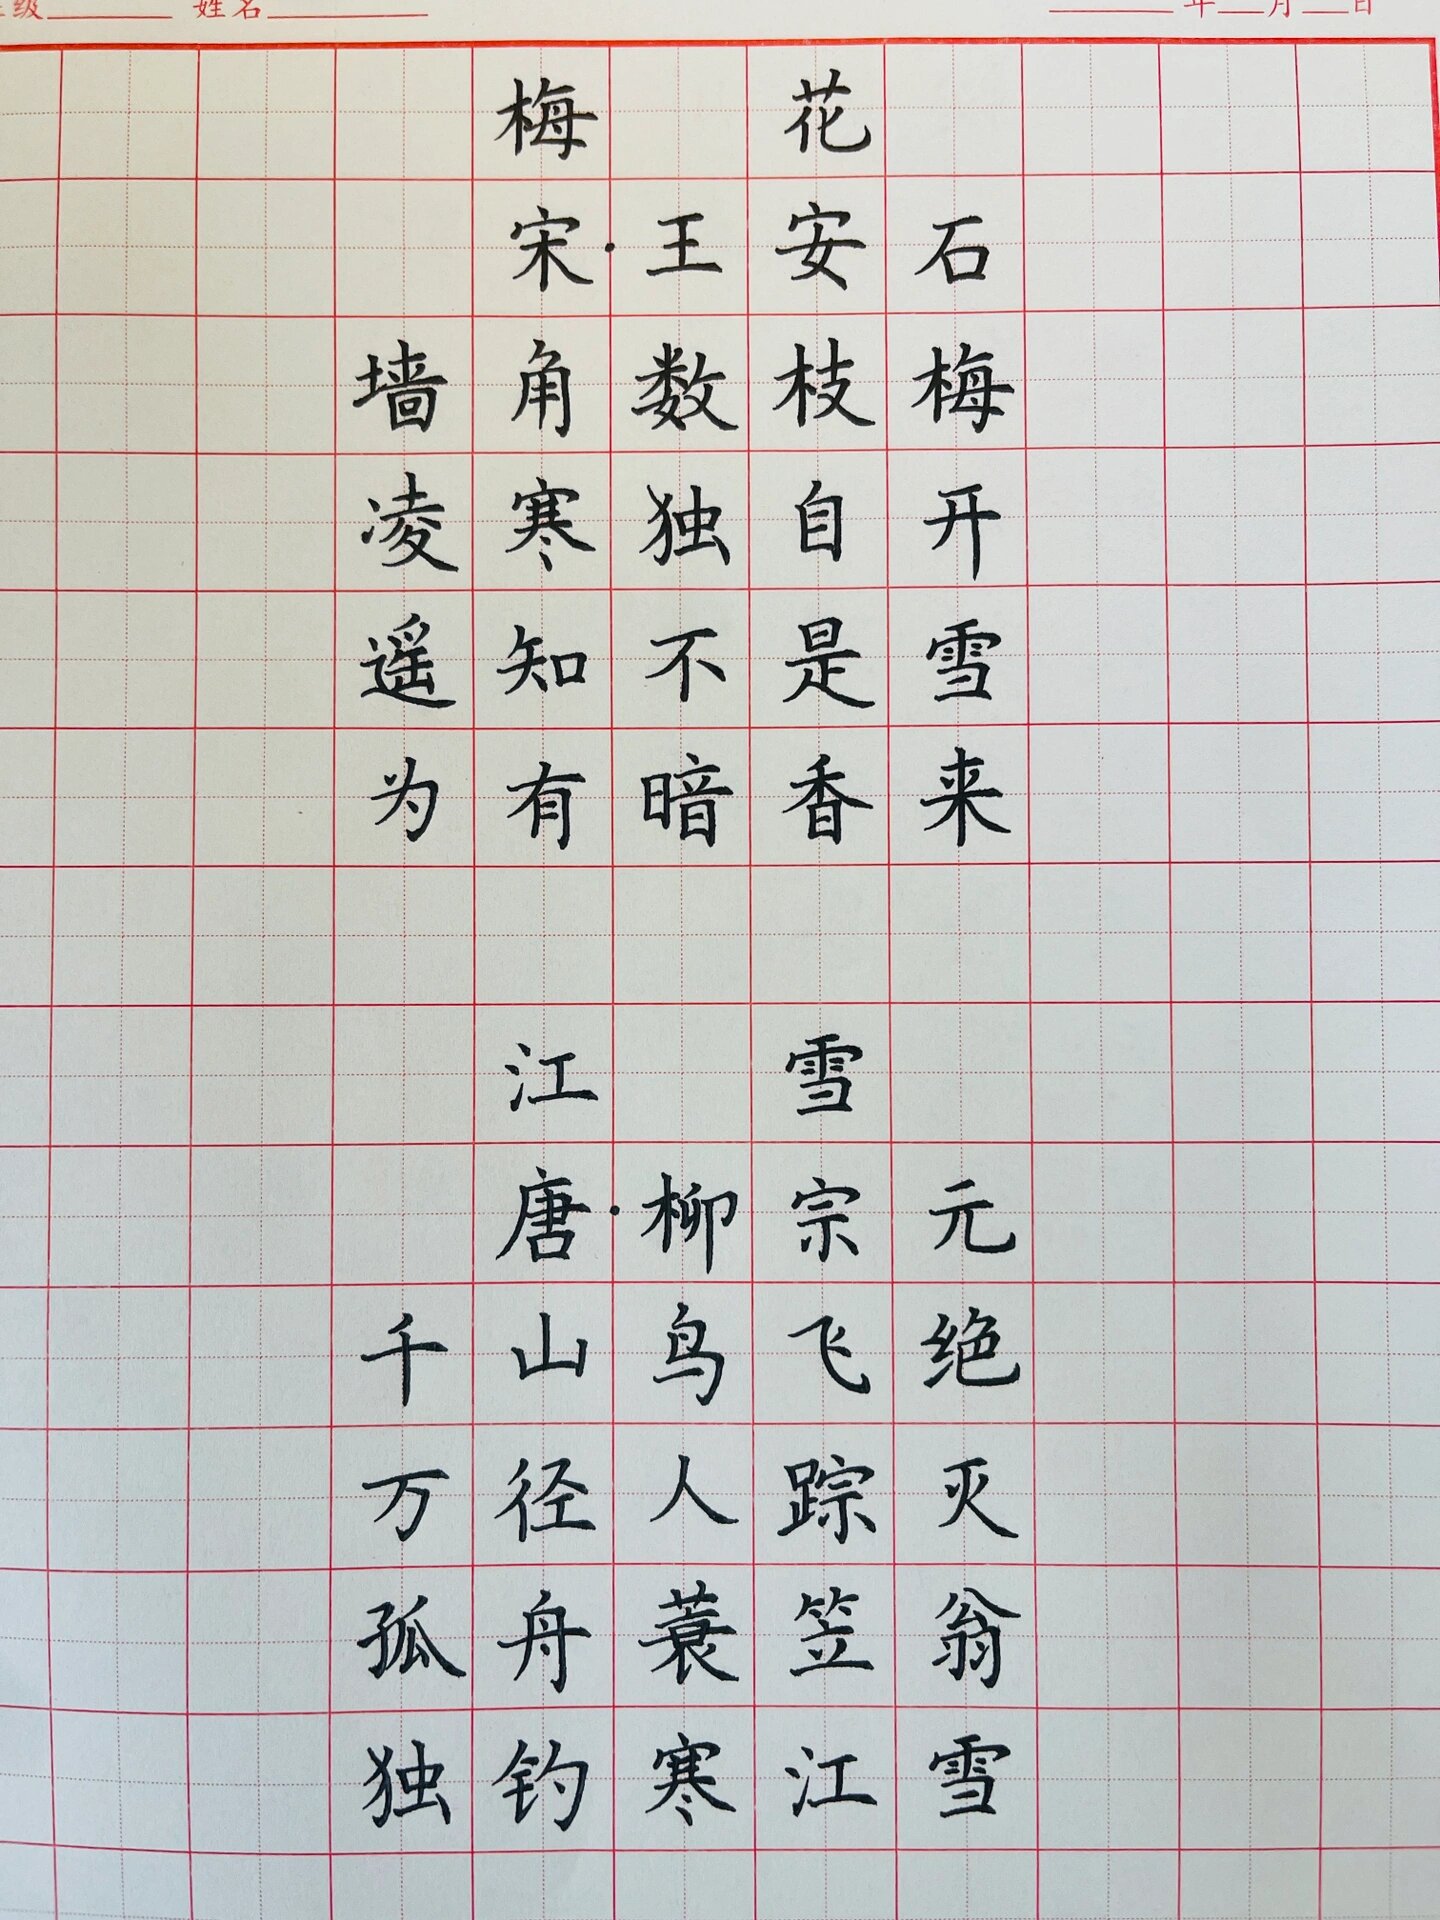 级______ 姓名______ ______年___月___日
梅 花
宋·王安石
墙角数枝梅
凌寒独自开
遥知不是雪
为有暗香来
江 雪
唐·柳宗元
千山鸟飞绝
万径人踪灭
孤舟蓑笠翁
独钓寒江雪